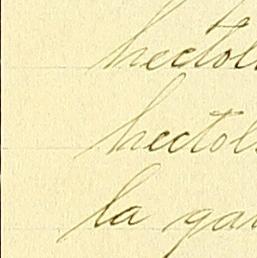 hectol
hectol
la gar